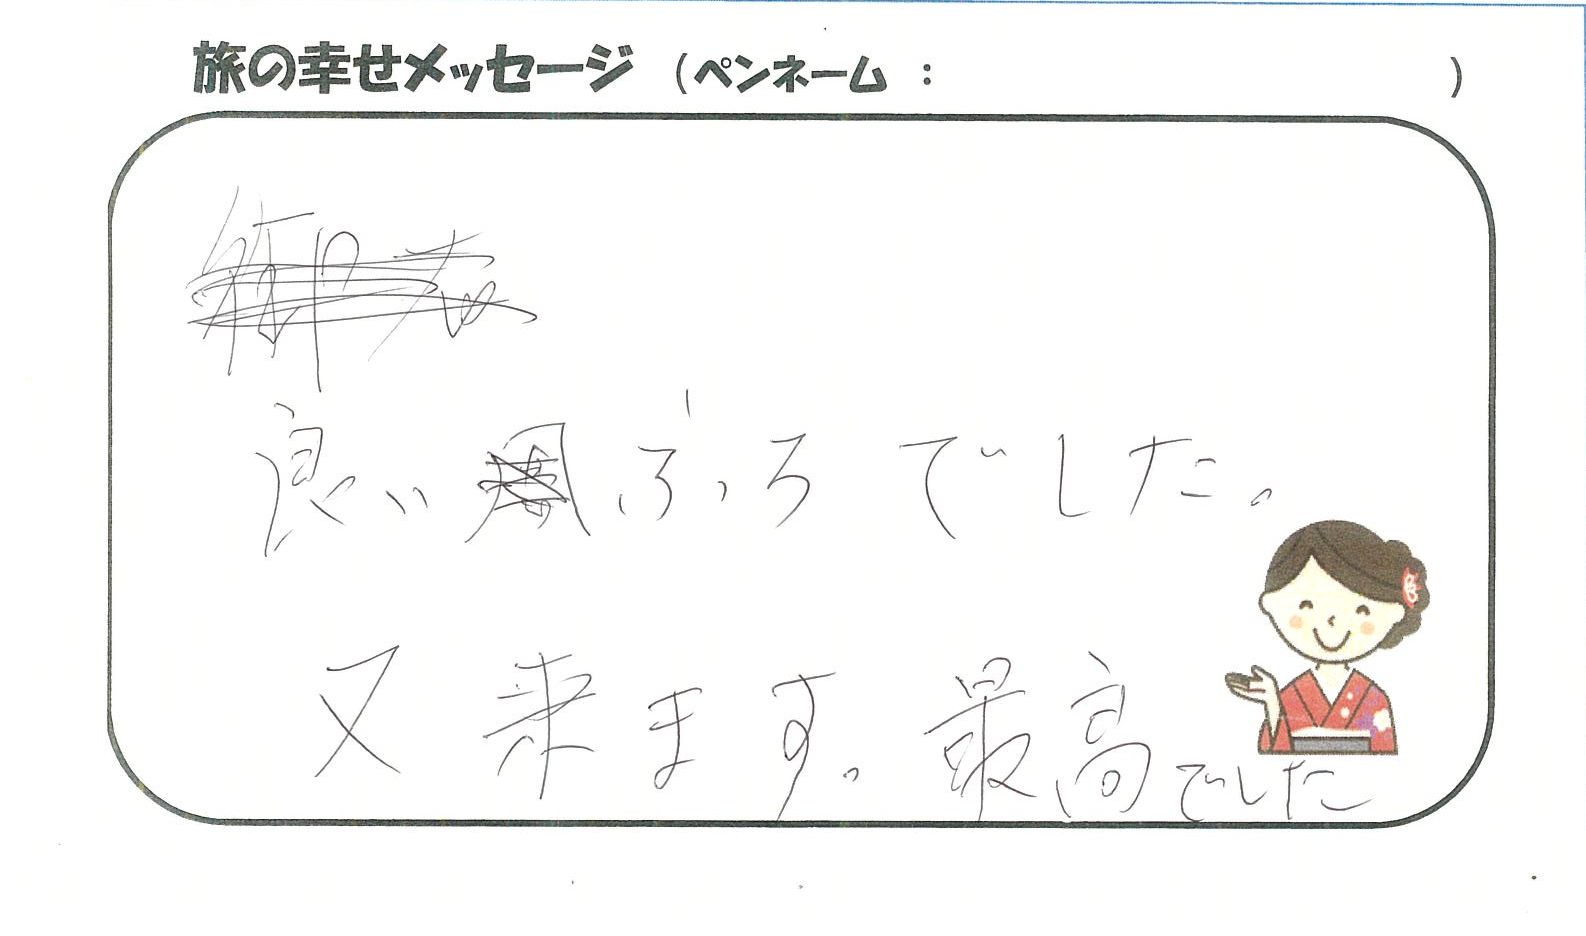 旅の幸せメッセージ (ペンネーム : )
良い ぶろ でした。
又来ます。最高でした